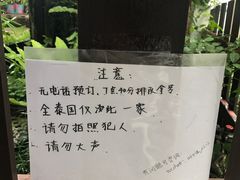 注意:
无电话预订、7点40分排队拿号
全泰国仅次此一家
请勿拍照犯人
请勿大声